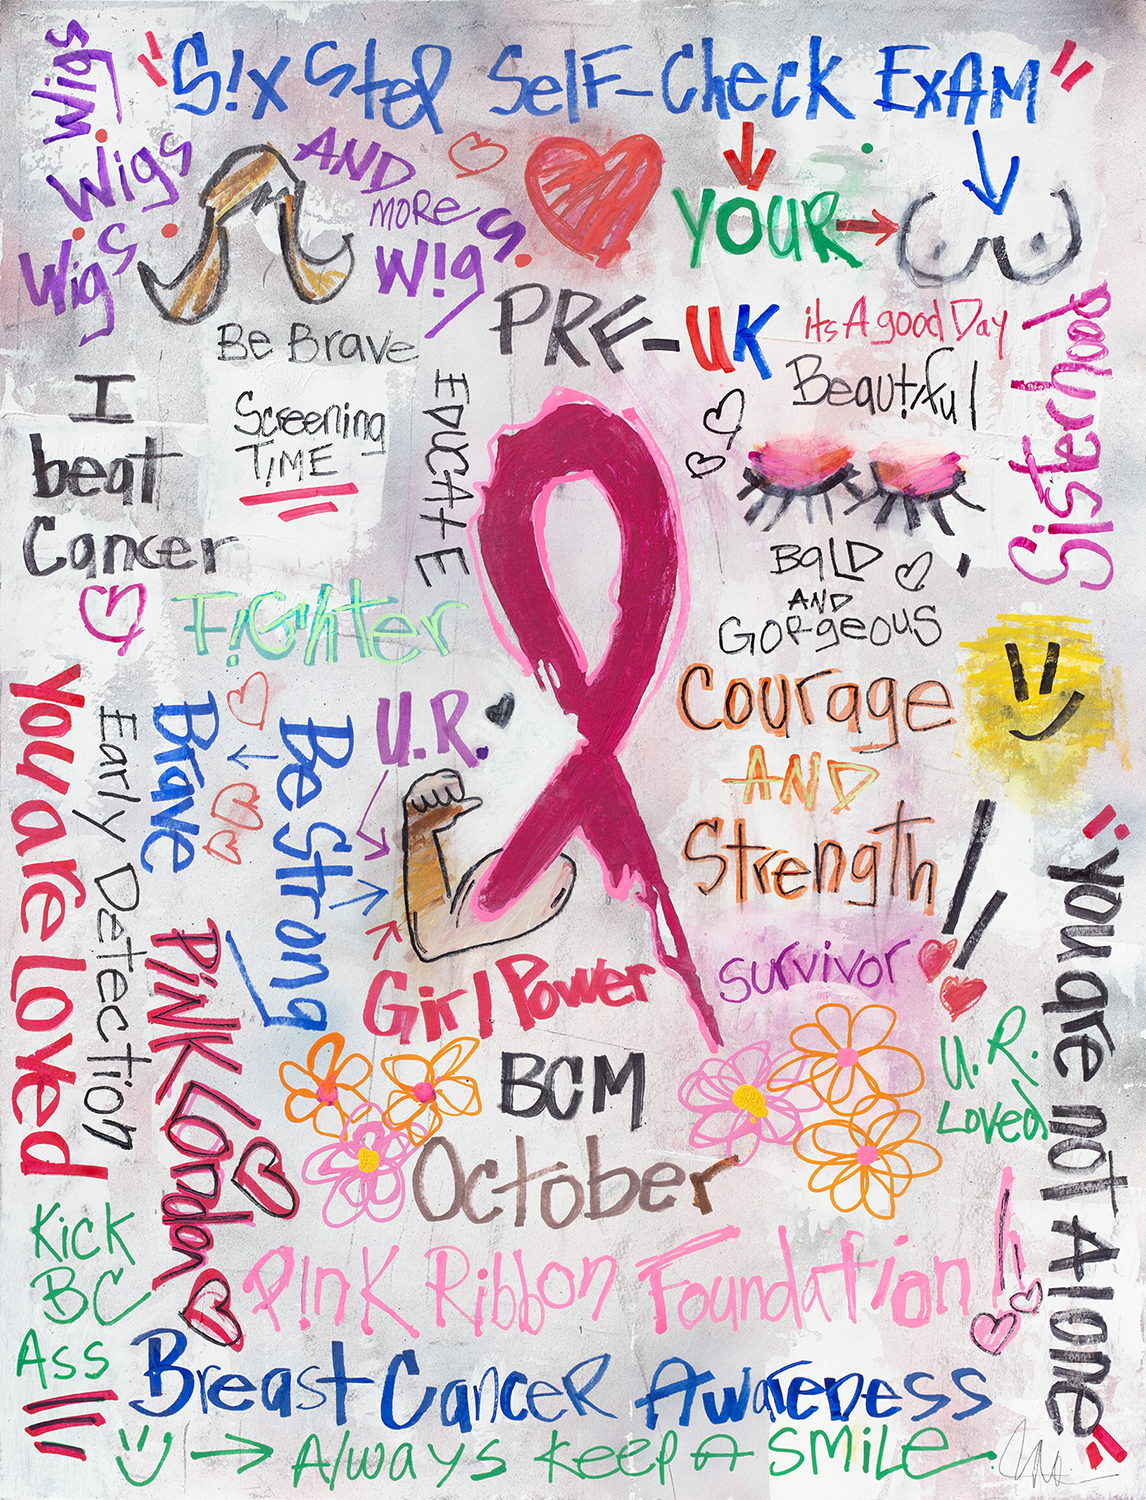 "Six Step Self-Check Exam"
Wigs.
Wigs.
Wigs.
AND
MORE
Wigs.
YOUR
PRF-UK
its A good Day
Sisterhood
Be Brave
Beautiful
I
beat
Cancer
Screening
TiME
EDUCAtE
BALD
AND
GORgeous
Fighter
Courage
AND
Strength
U.R.
You are Loved
Early Detection
Brave
Be Strong
PiNK London
Girl Power
Survivor
"you are not Alone"
BCM
October
U.R.
Loved
Kick
BC
Ass !!!
PiNK Ribbon Foundation!!
Breast Cancer Awareness
Always keep A SMiLe